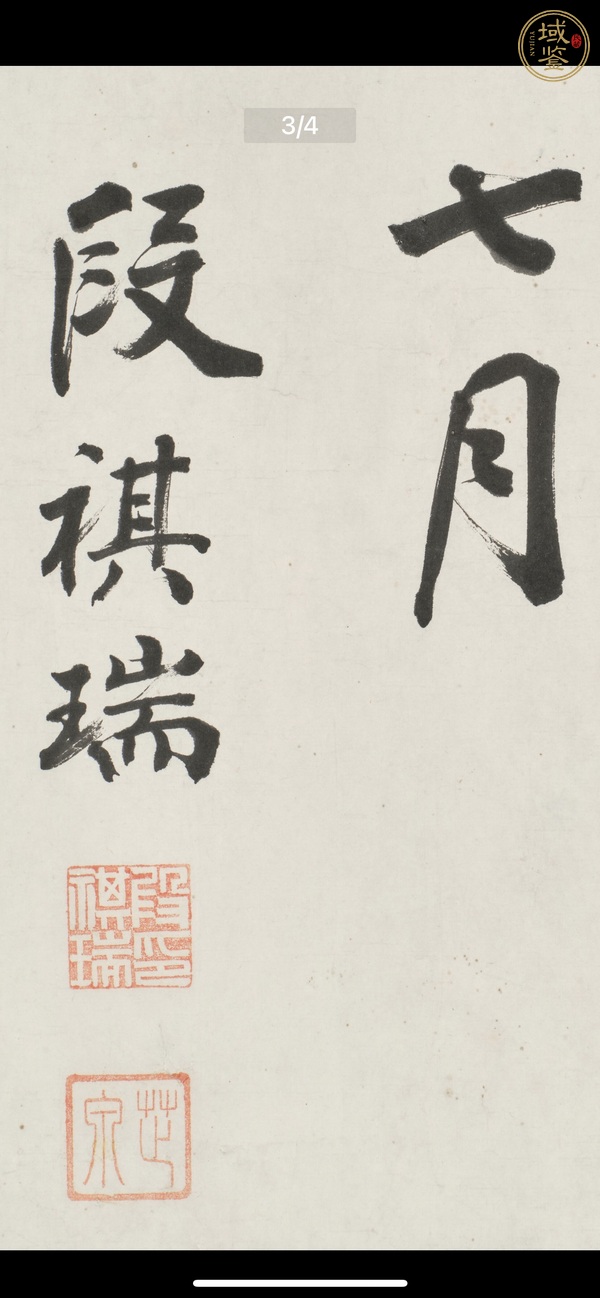 域鉴
YUJIAN
3/4
七月
段祺瑞
段祺瑞印
芝泉